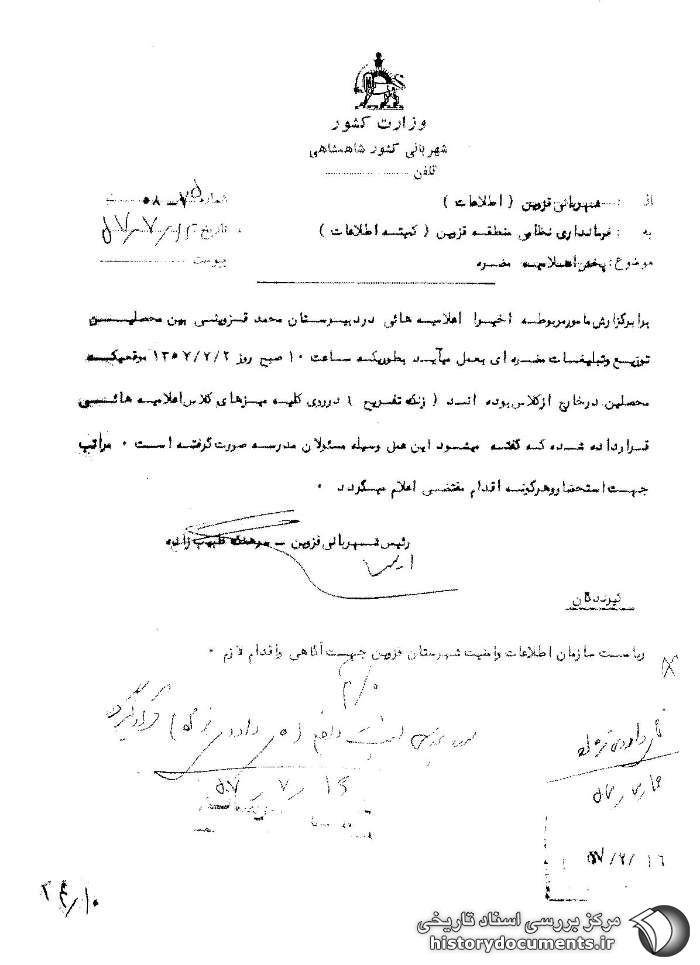 وزارت کشور
شهربانی کشور شاهنشاهی
تلفن
شماره ۷۵-۵۸
از : شهربانی قزوین ( اطلاعات )
تاریخ ۵۷/۷/۱۲
به : فرمانداری نظامی منطقه قزوین ( کمیته اطلاعات )
پیوست
موضوع : پخش اعلامیه مضره
برابر گزارش مامور مربوطه اخیرا اعلامیه هائی در دبیرستان محمد قزوینی بین محصلین
توزیع و تبلیغات مضره ای بعمل میآید بطوریکه ساعت ۱۰ صبح روز ۱۳۵۷/۷/۲ موقعیکه
محصلین در خارج از کلاس بوده اند ( زنگ تفریح ) در روی کلیه میزهای کلاس اعلامیه هائی
قرار داده شده که گفته میشود این عمل وسیله مسئولان مدرسه صورت گرفته است ۰ مراتب
جهت استحضار و هرگونه اقدام مقتضی اعلام میگردد ۰
رئیس شهربانی قزوین - سرهنگ طبیب زاده
گیرندگان
ریاست سازمان اطلاعات و امنیت شهرستان قزوین جهت آگاهی و اقدام لازم ۰
۵۷/۷/۱۶
مرکز بررسی اسناد تاریخی
historydocuments.ir